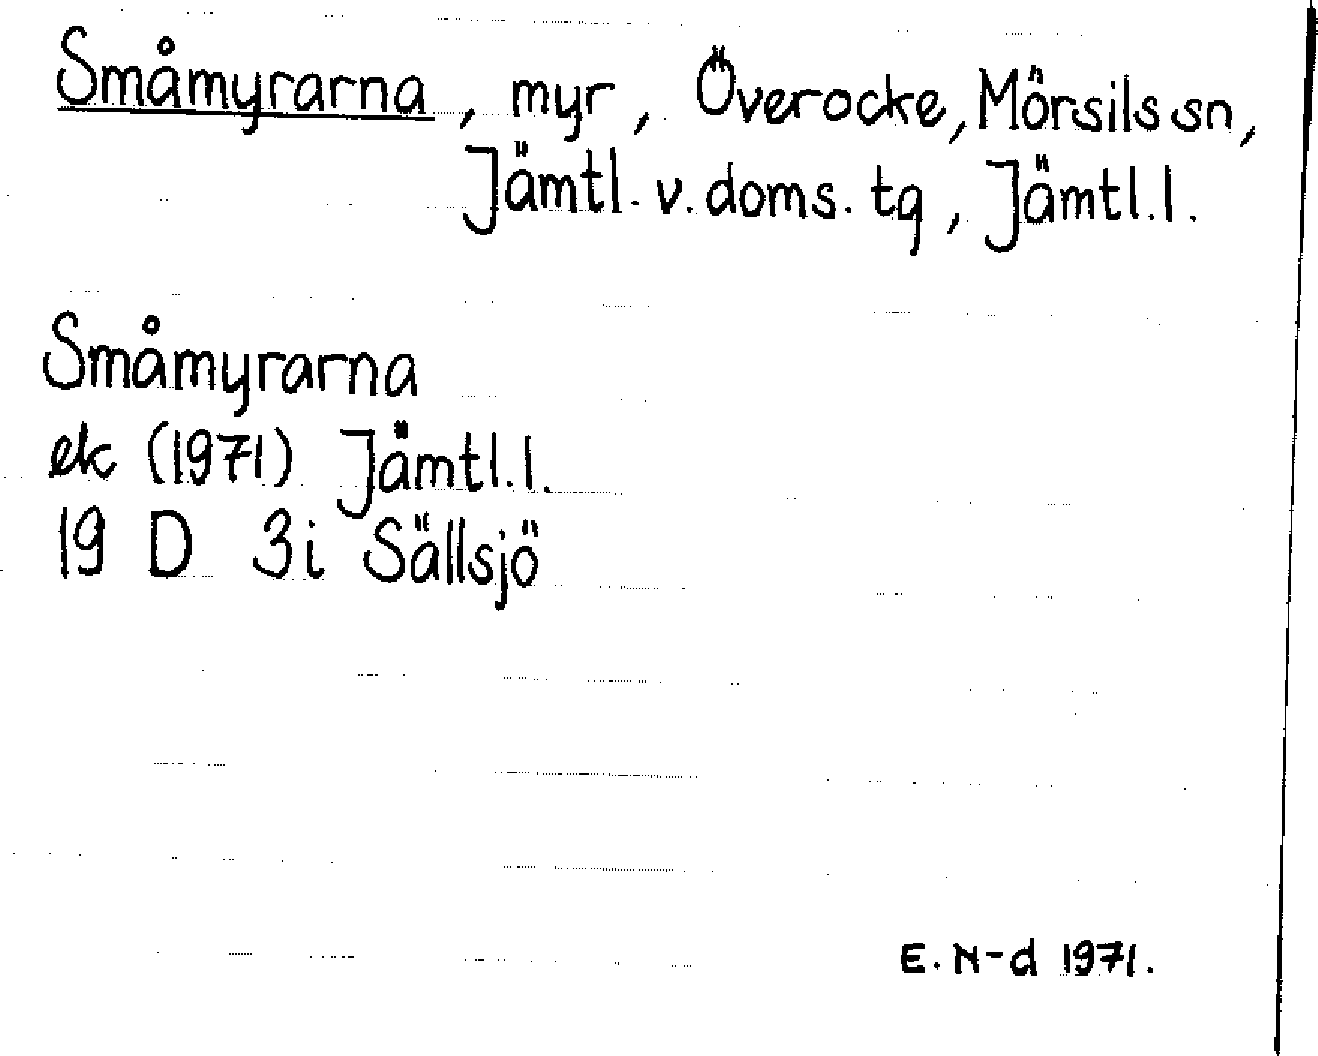 Småmyrarna, myr, Överocke, Mörsils sn,
Jämtl. v. doms. tg, Jämtl. l.
Småmyrarna
ek (1971) Jämtl. l.
19 D 3i Sällsjö
E. N-d 1971.